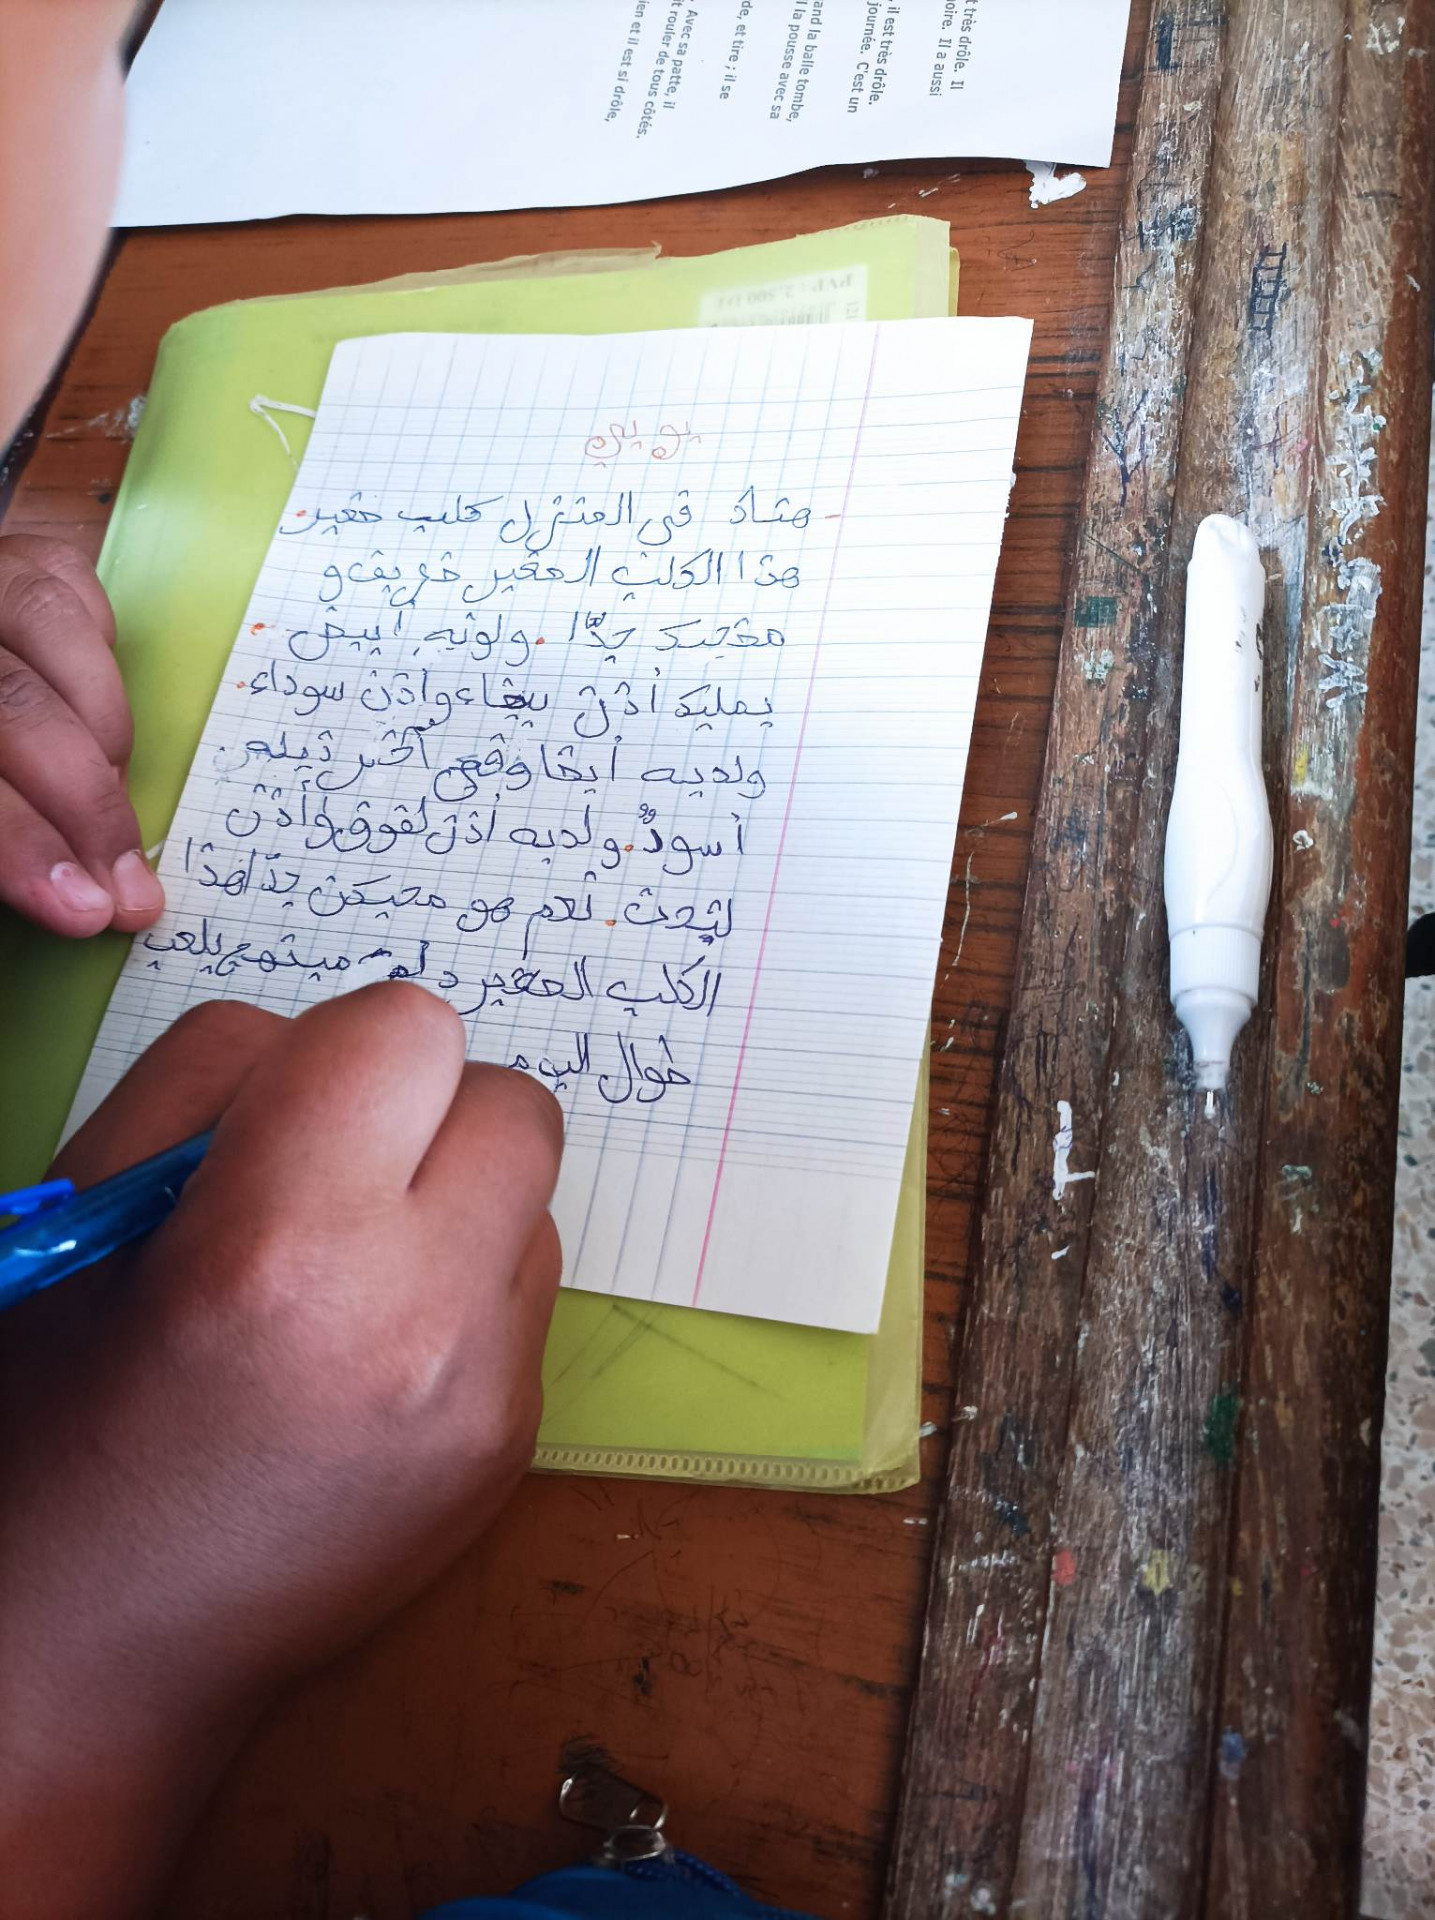 t très drôle. Il
oire. Il a aussi
, il est très drôle.
journée. C'est un
and la balle tombe,
l la pousse avec sa
de, et tire ; il se
. Avec sa patte, il
it rouler de tous côtés.
ien et il est si drôle,
PVP : 2.800 DT
بوبي
- هناك في المنزل كلب صغير.
هذا الكلب الصغير ظريف و
مضحك جدّا. ولونه أبيض.
يمليك أذن بيضاء وأذن سوداء.
ولديه أيضا وفي آخر ذيله
أسودٌ. ولديه أذن لفوق وأذن
لتحت. نعم هو مضحك جدّا هذا
الكلب الصغير يلعب
طوال اليوم